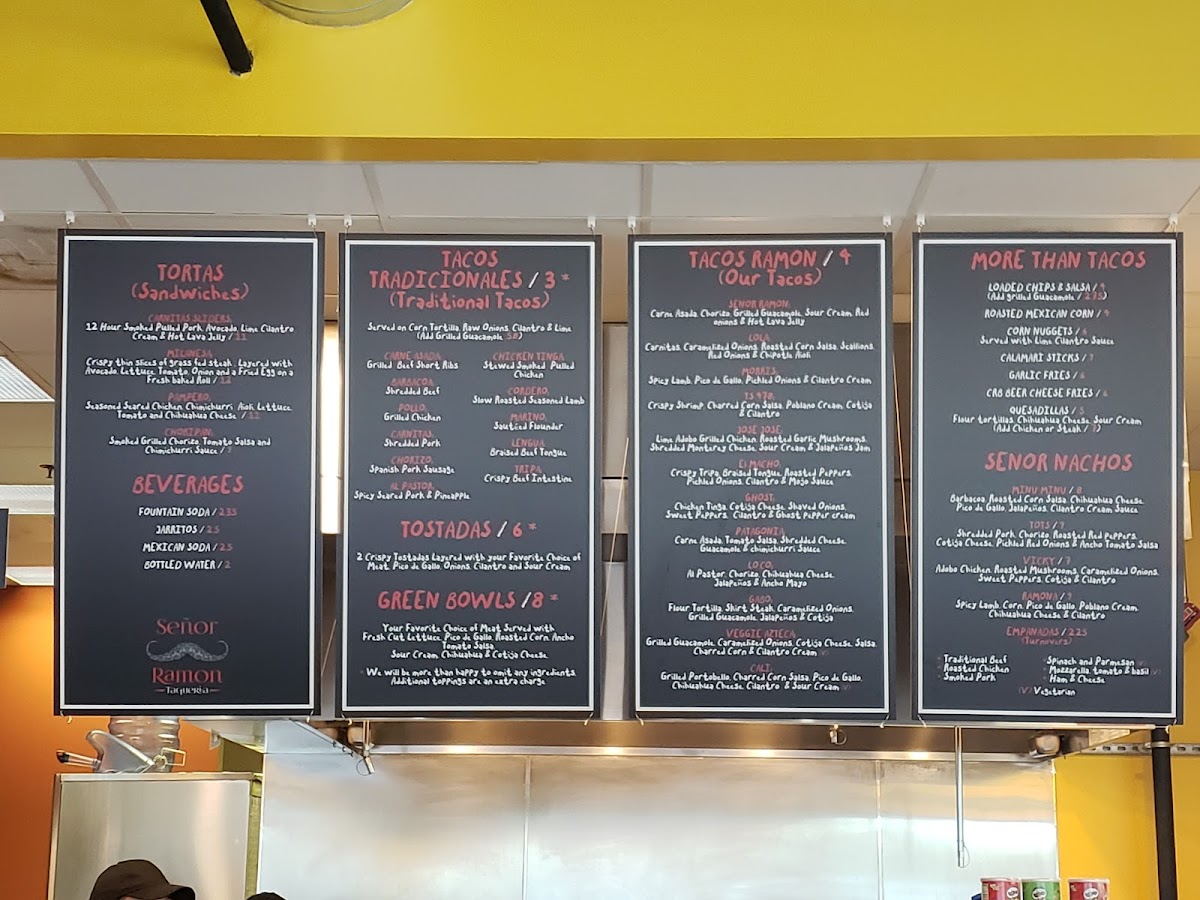 TORTAS
(Sandwiches)
CARNITAS SLIDERS:
12 Hour Smoked Pulled Pork, Avocado, Lime Cilantro
Cream & Hot Lava Jelly / 11
MILANESA:
Crispy thin slices of grass fed steak, Layered with
Avocado, Lettuce, Tomato, Onion and a Fried Egg on a
Fresh baked Roll / 12
PAMPERO:
Seasoned Seared Chicken, Chimichurri Aioli, Lettuce,
Tomato and Chihuahua Cheese / 12
CHORIPAN:
Smoked Grilled Chorizo, Tomato Salsa and
Chimichurri Sauce /
BEVERAGES
FOUNTAIN SODA / 2.35
JARRITOS / 2.5
MEXICAN SODA / 2.5
BOTTLED WATER / 2
Señor
Ramon
Taqueria
TACOS
TRADICIONALES / 3 *
(Traditional Tacos)
Served on Corn Tortilla, Raw Onions, Cilantro & Lime
(Add Grilled Guacamole
CARNE ASADA:
Grilled Beef Short Ribs
BARBACOA:
Shredded Beef
POLLO:
Grilled Chicken
CARNITAS:
Shredded Pork
CHORIZO:
Spanish Pork Sausage
AL PASTOR:
Spicy Seared Pork & Pineapple
CHICKEN TINGA:
Stewed Smoked Pulled
Chicken
CORDERO:
Slow Roasted Seasoned Lamb
MARINO:
Sautied Flounder
LENGUA:
Braised Beef Tongue
TRIPA:
Crispy Beef Intestine
TOSTADAS / 6 *
2 Crispy Tostadas Layered with your Favorite Choice of
Meat, Pico de Gallo, Onions, Cilantro and Sour Cream
GREEN BOWLS / 8 *
Your Favorite Choice of Meat Served with
Fresh Cut Lettuce, Pico de Gallo, Roasted Corn, Ancho
Tomato Salsa,
Sour Cream, Chihuahua & Cotija Cheese
* We will be more than happy to omit any ingredients.
Additional toppings are an extra charge
TACOS RAMON / 4
(Our Tacos)
SENOR RAMON:
Carne Asada, Chorizo, Grilled Guacamole, Sour Cream, Red
onions & Hot Lava Jelly
LOLA:
Carnitas, Caramelized Onions, Roasted Corn Salsa, Scallions,
Red Onions & Chipotle Aioli
MORRIS:
Spicy Lamb, Pico de Gallo, Pickled Onions & Cilantro Cream
IS 978:
Crispy Shrimp, Charred Corn Salsa, Poblano Cream, Cotija
& Cilantro
JOSE JOSE:
Lime Adobo Grilled Chicken, Roasted Garlic Mushrooms,
Shredded Monterey Cheese, Sour Cream & Jalapeños Jam
El MACHO:
Crispy Tripa, Braised Tongue, Roasted Peppers,
Pickled Onions, Cilantro & Mojo Sauce
GHOST:
Chicken Tinga, Cotija Cheese, Shaved Onions,
Sweet Peppers, Cilantro & Ghost Pepper cream
PATAGONIA:
Carne Asada, Tomato Salsa, Shredded Cheese,
Guacamole & chimichurri Sauce
LOCO:
Al Pastor, Chorizo, Chihuahua Cheese,
Jalapeños & Ancho Mayo
GABO:
Flour Tortilla, Shirt Steak, Caramelized Onions,
Grilled Guacamole, Jalapeños & Cotija
VEGGIE AZTECA:
Grilled Guacamole, Caramelized Onions, Cotija Cheese, Salsa,
Charred Corn & Cilantro Cream (V)
CALI:
Grilled Portobello, Charred Corn Salsa, Pico de Gallo,
Chihuahua Cheese, Cilantro & Sour Cream (V)
MORE THAN TACOS
LOADED CHIPS & SALSA /
(Add grilled Guacamole / 2.75)
ROASTED MEXICAN CORN /
CORN NUGGETS /
Served with Lime Cilantro Sauce
CALAMARI STICKS / 7
GARLIC FRIES /
CRB BEER CHEESE FRIES /
QUESADILLAS / 5
Flour tortillas, Chihuahua Cheese, Sour Cream
(Add Chicken or Steak /
SENOR NACHOS
MINU MINU / 8
Barbacoa, Roasted Corn Salsa, Chihuahua Cheese,
Pico de Gallo, Jalapeños, Cilantro Cream Sauce
TOTS / 7
Shredded Pork, Chorizo, Roasted Red Peppers,
Cotija Cheese, Pickled Red Onions & Ancho Tomato Salsa
VICKY / 7
Adobo Chicken, Roasted Mushrooms, Caramelized Onions,
Sweet Peppers, Cotija & Cilantro
RAMONA / 9
Spicy Lamb, Corn, Pico de Gallo, Poblano Cream,
Chihuahua Cheese & Cilantro
EMPANADAS / 2.25
(Turnovers)
* Traditional Beef
* Roasted Chicken
* Smoked Pork
* Spinach and Parmesan (V)
* Mozzarella, tomato & basil (V)
* Ham & Cheese
(V) Vegetarian